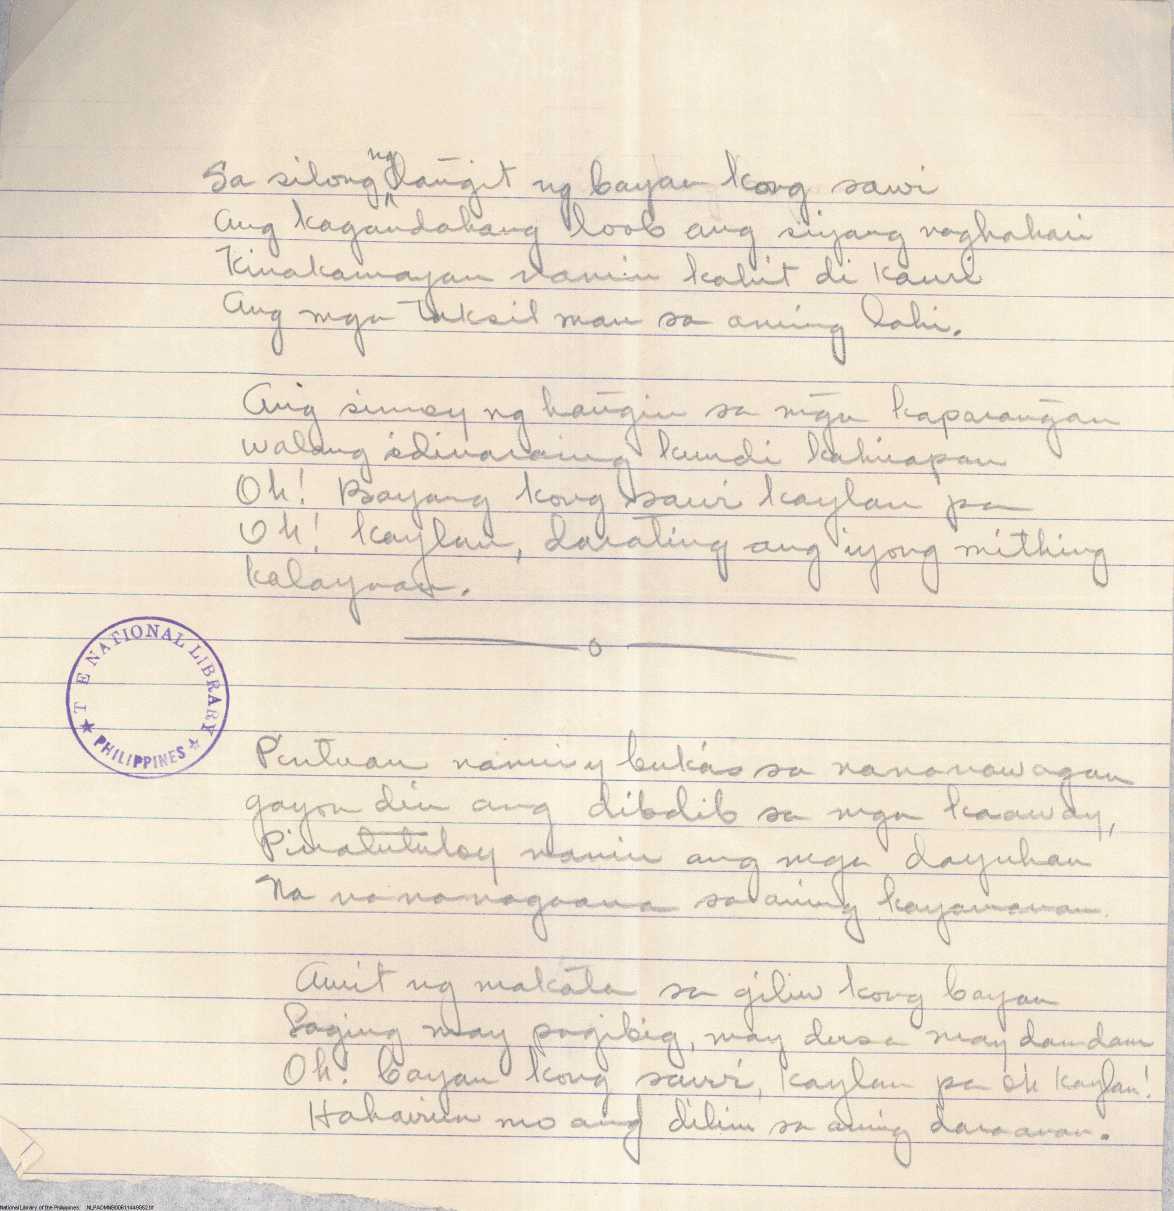 Sa silong ng langit ng bayan kong sawi
Ang kagandahang loob ang siyang naghahari
Kinakamayan namin kahit di kauri
Ang mga taksil man sa aming lahi.
Ang simoy ng hangin sa mga kaparangan
walang idinaraing kundi kahirapan
Oh! Bayang kong sawi kaylan pa
Oh! kaylan, darating ang iyong mithing
kalayaan.
o
THE NATIONAL LIBRARY
PHILIPPINES
Pintuan namin y bukás sa nananawagan
gayon din ang dibdib sa mga kaaway,
Pinatutuloy namin ang mga dayuhan
Na nananagana sa aming kayamanan.
Awit ng makata sa giliw kong bayan
Laging may pagibig, may dusa may damdam
Oh! bayan kong sawi, kaylan pa oh kaylan!
Hahawiin mo ang dilim sa aming daraanan.
National Library of the Philippines